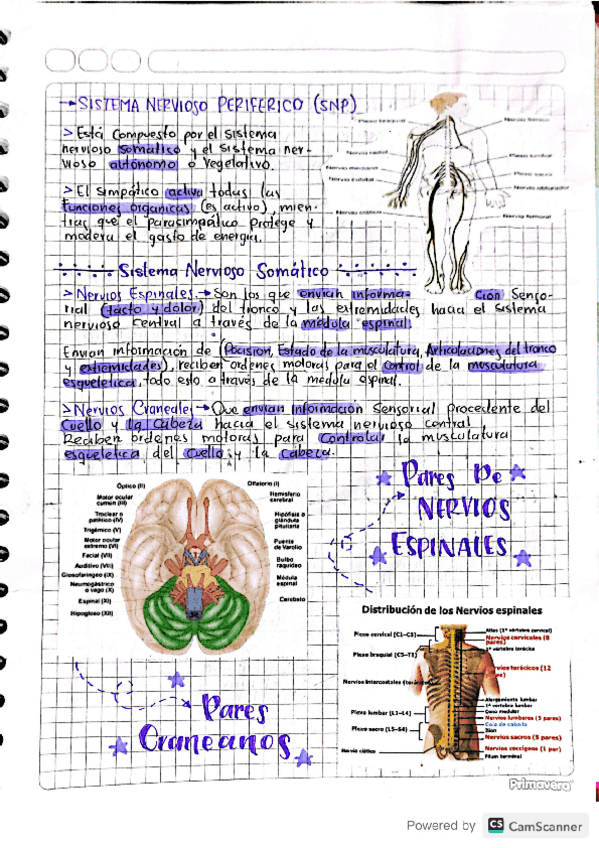 →SISTEMA NERVIOSO PERIFERICO (SNP)
> Está compuesto por el sistema
nervioso somático y el sistema ner-
vioso autónomo o vegetativo.
> El simpático activa todas las
funciones organicas (es activo), mien-
tras que el parasimpático protege y
modera el gasto de energia.
Nervio mediano
Nervio cubital
Nervio ciático
Plexo lumbar
Plexo sacro
Nervio obturador
Nervio femoral
Sistema Nervioso Somático
> Nervios Espinales → Son los que envian informa- ción senso-
rial (tacto y dolor) del tronco y las extremidades hacia el sistema
nervioso central a través de la médula espinal.
Envian información de (Posicion, Estado de la musculatura, Articulaciones del tronco
y extremidades), reciben ordenes motoras para el control de la musculatura
esqueletica, todo esto a través de la médula espinal.
> Nervios Craneales → Que envian información sensorial procedente del
Cuello y la Cabeza hacia el sistema nervioso central
Reciben órdenes motoras para controlar la musculatura
esqueletica del cuello y la cabeza.
Pares De
NERVIOS
ESPINALES
Óptico (II)
Motor ocular
común (III)
Troclear o
patético (IV)
Trigémico (V)
Motor ocular
extremo (VI)
Facial (VII)
Auditivo (VIII)
Glosofaríngeo (IX)
Neumogástrico
o vago (X)
Espinal (XI)
Hipogloso (XII)
Olfatorio (I)
Hemisferio
cerebral
Hipófisis o
glándula
pituitaria
Puente
de Varolio
Bulbo
raquídeo
Médula
espinal
Cerebelo
Pares
Craneanos
Distribución de los Nervios espinales
Plexo cervical (C1-C8)
Plexo braquial (C5-T1)
Nervios intercostales
Plexo lumbar (L1-L4)
Plexo sacro (L5-S4)
Nervio ciático
Atlas (1ª vértebra cervical)
Nervios cervicales (8
pares)
1ª vértebra torácica
Nervios torácicos (12
pares)
1ª vértebra lumbar
Cono medular
Nervios lumbares (5 pares)
Cola de caballo
Nervios sacros (5 pares)
Nervios coccígeos (1 par)
Filum terminal
Primavera
Powered by CS CamScanner